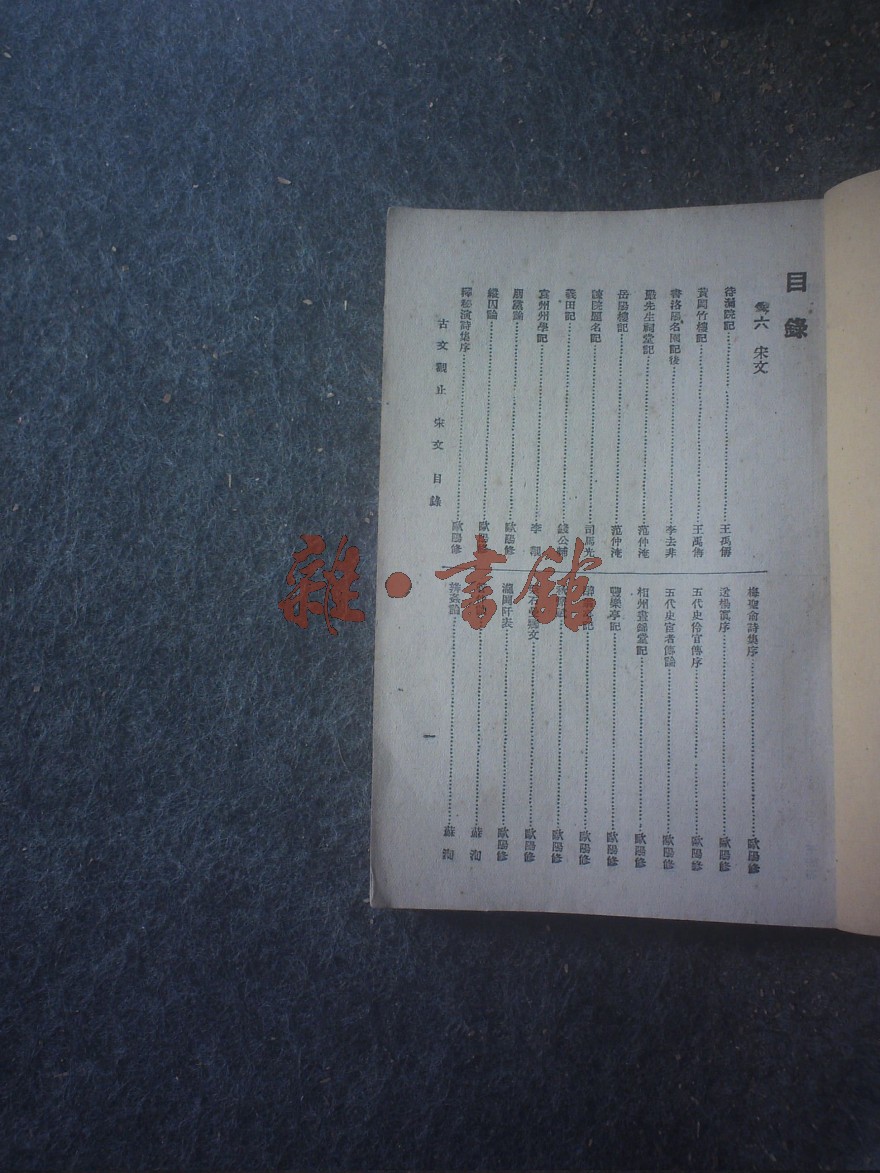 目錄
卷六 宋文
待漏院記 王禹偁
黃岡竹樓記 王禹偁
書洛陽名園記後 李去非
嚴先生祠堂記 范仲淹
岳陽樓記 范仲淹
諫院題名記 司馬光
義田記 錢公輔
袁州州學記 李覯
朋黨論 歐陽修
縱囚論 歐陽
釋祕演詩集序 歐陽修
梅聖俞詩集序 歐陽修
送楊寘序 歐陽修
五代史伶官傳序 歐陽修
五代史宦者傳論 歐陽修
相州晝錦堂記 歐陽修
豐樂亭記 歐陽修
記 歐陽修
歐陽修
文 歐陽修
瀧岡阡表 歐陽修
蘇洵
辨姦論 蘇洵
古文觀止 宋文 目錄
一
雜·書館